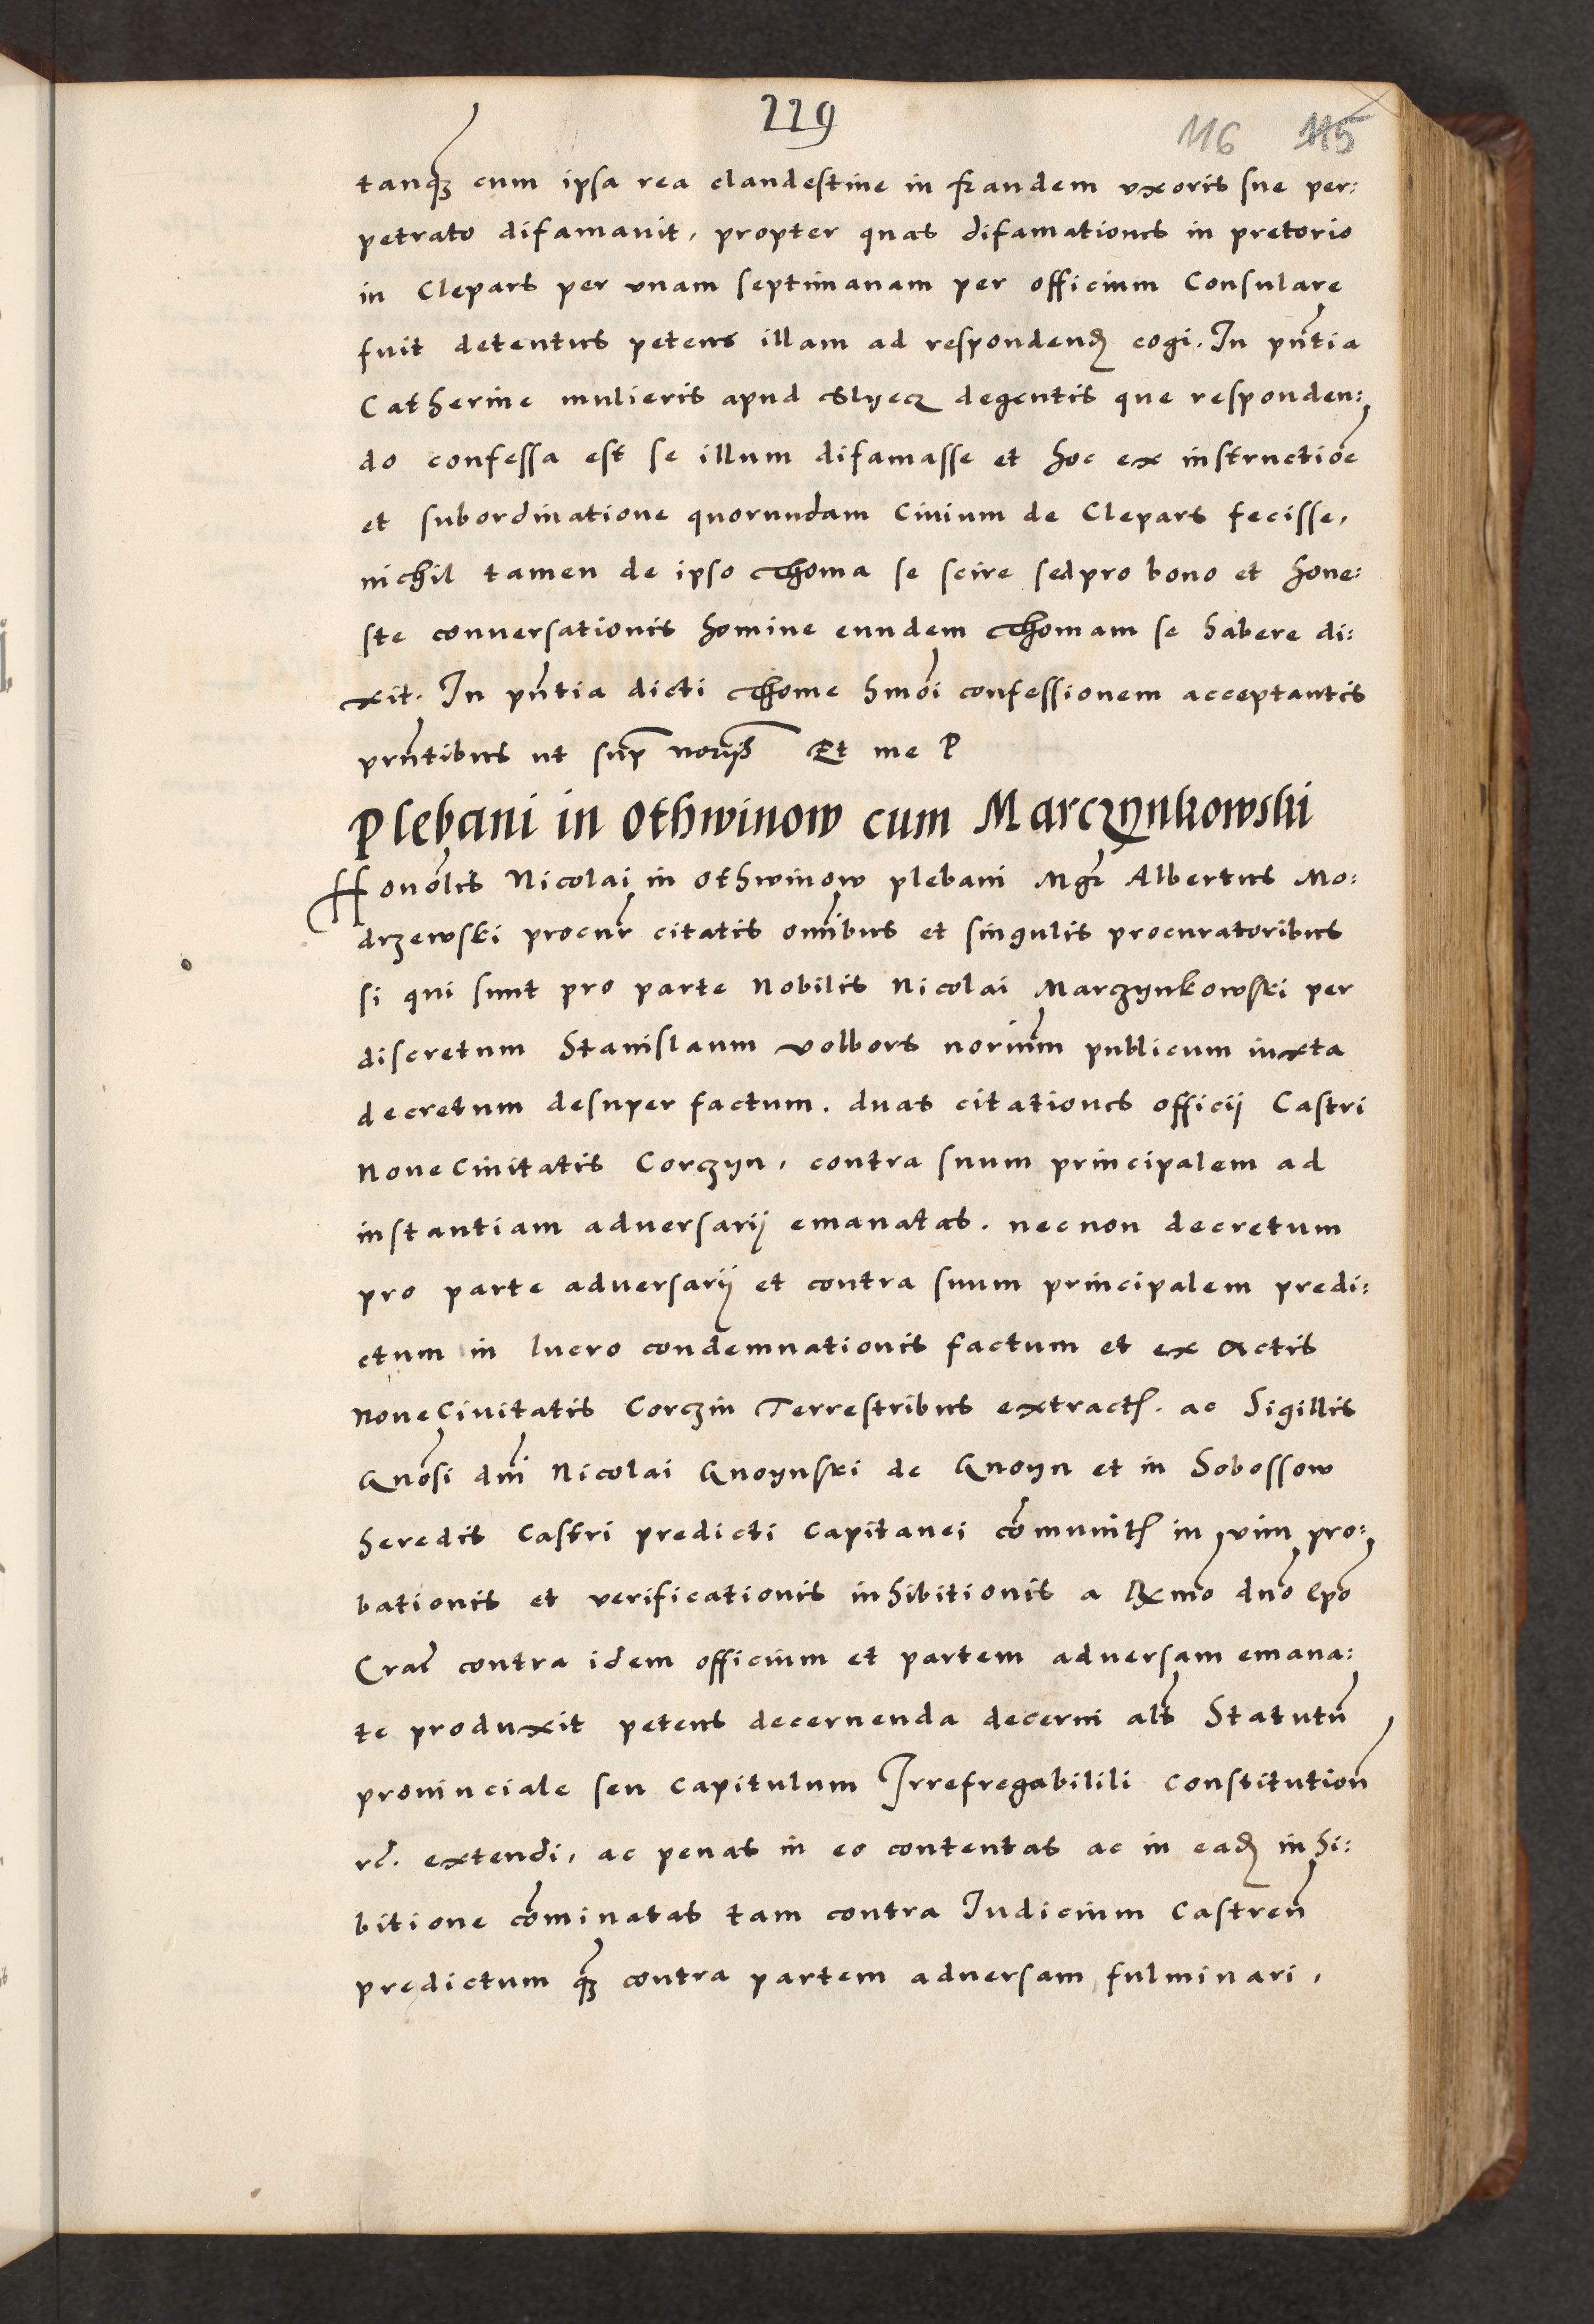 229
116 115
tanq̃ȝ cum ipsa rea clandestine in fraudem vxoris sue per:
petrato difamauit, propter quas difamationes in pretorio
in Clepars per vnam septimanam per officium Consulare
fuit detentus petens illam ad respondendȝ cogi. In pñtia
Catherine mulieris apud degentis que responden:
do confessa est se illum difamasse et hoc ex instructiõe
et subordinatione quorundam Ciuium de Clepars fecisse,
nichil tamen de ipso Thoma se scire sed pro bono et hone:
ste conuersationis homine eundem Thomam se habere di:
xit. In pñtia dicti Thome hmõi confessionem acceptantis
prñtibus ut sup̃ norijs Et me P
Plebani in Othwinow cum Marczynkowski
Honõlis Nicolai in Othwinow plebani Mgr̃ Albertus Mo:
drzewski procur̃ citatis om̃ibus et singulis procuratoribus
si qui sunt pro parte Nobilis Nicolai Marczynkowski per
discretum Stanislaum volbors noriũm publicum iuxta
decretum desuper factum. duas citationes officij Castri
NoueCiuitatis Corczyn, contra suum principalem ad
instantiam aduersarij emanatas. necnon decretum
pro parte aduersarij et contra suum principalem predi:
ctum in lucro condemnationis factum et ex Actis
NoueCiuitatis Corczin Terrestribus extract. ac Sigillis
Gnõsi dñi Nicolai Gnoynski de Gnoyn et in Sobossow
heredis Castri predicti Capitanei cõmunit in vim pro:
bationis et verificationis inhibitionis a Rxmo dño Epõ
Crac̃ contra idem officium et partem aduersam emana:
te produxit petens decernenda decerni als̃ Statutũ
prouinciale seu Capitulum Irrefregabilili Constitution̄
rc̃. extendi, ac penas in eo contentas ac in eadȝ inhi:
bitione cõminatas tam contra Iudicium Castreñ
predictum q̃ȝ contra partem aduersam fulminari,